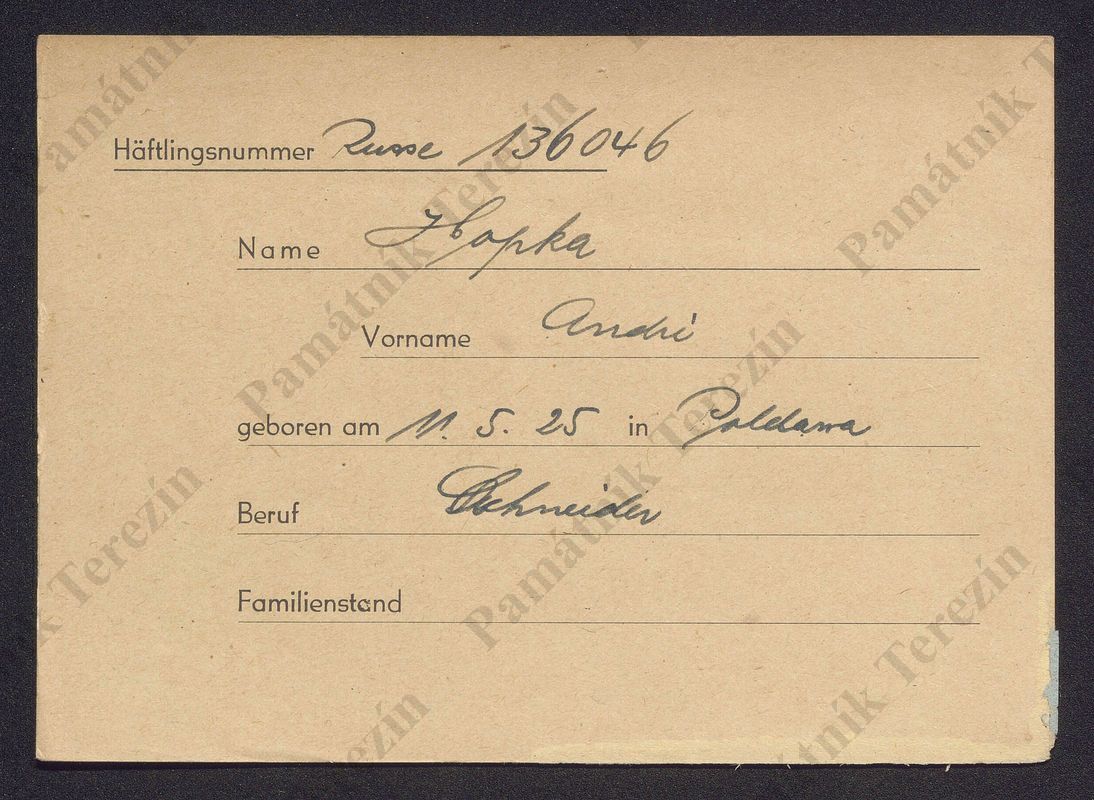 Häftlingsnummer Russe 136046
Name Hopka
Vorname Andrí
geboren am 11. 5. 25 in Poldawa
Beruf Schneider
Familienstand
Památník Terezín